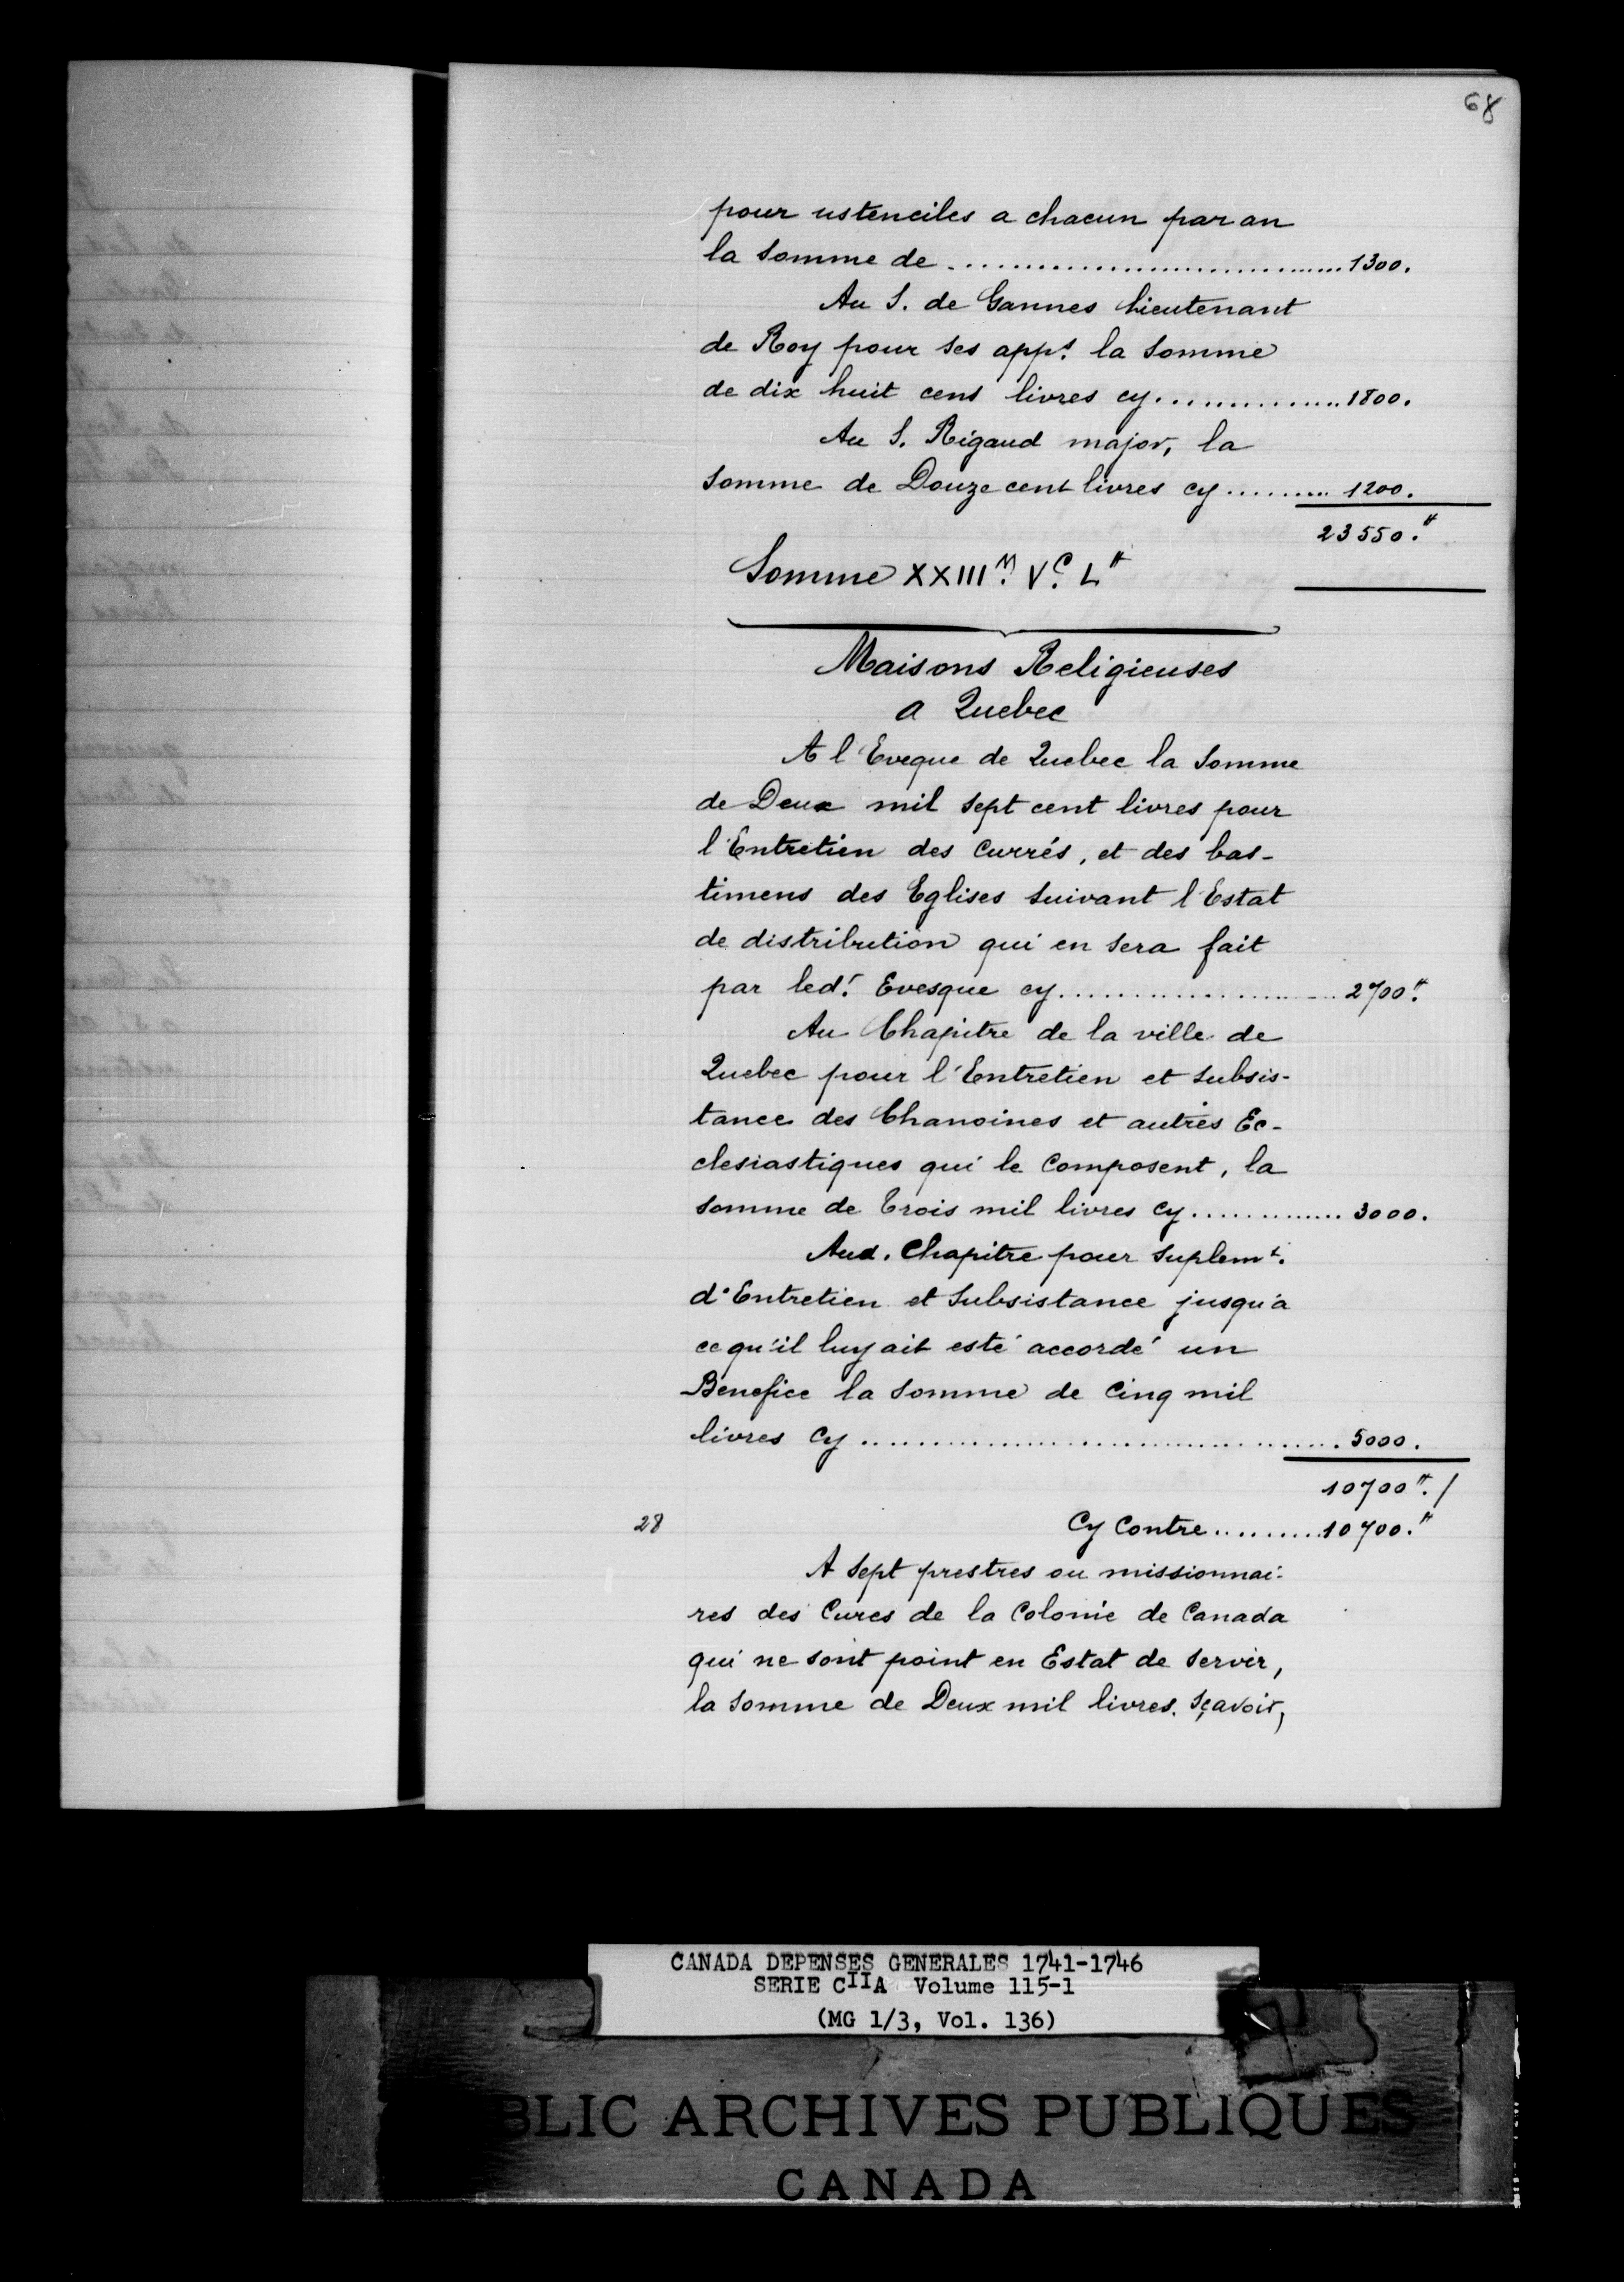 68
pour ustenciles a chacun par an
la somme de .............................. 1300.
Au S. de Gannes Lieutenant
de Roy pour ses app.s la somme
de dix huit cens livres cy............... 1800.
Au S. Rigaud major, la
somme de Douze cent livres cy......... 1200.
23550.#
Somme XXIII.M V.C L#
Maisons Religieuses
a Quebec
A l'Eveque de Quebec la somme
de Deux mil sept cent livres pour
l'Entretien des Currés, et des bas-
timens des Eglises suivant l'Estat
de distribution qui en sera fait
par led.t Evesque cy..................... 2700.#
Au Chapitre de la ville de
Quebec pour l'Entretien et subsis-
tance des Chanoines et autres Ec-
clesiastiques qui le Composent, la
somme de Trois mil livres cy............. 3000.
Aud. Chapitre pour suplem.t
d'Entretien et subsistance jusqu'a
ce qu'il luy ait esté accordé un
Benefice la somme de Cinq mil
livres cy .................................. 5000.
10700#./
28 Cy Contre.........10700.#
A sept prestres ou missionnai-
res des Cures de la Colonie de Canada
qui ne sont point en Estat de servir,
la somme de Deux mil livres. sçavoir,
CANADA DEPENSES GENERALES 1741-1746
SERIE CIIA Volume 115-1
(MG 1/3, Vol. 136)
BLIC ARCHIVES PUBLIQUES
CANADA